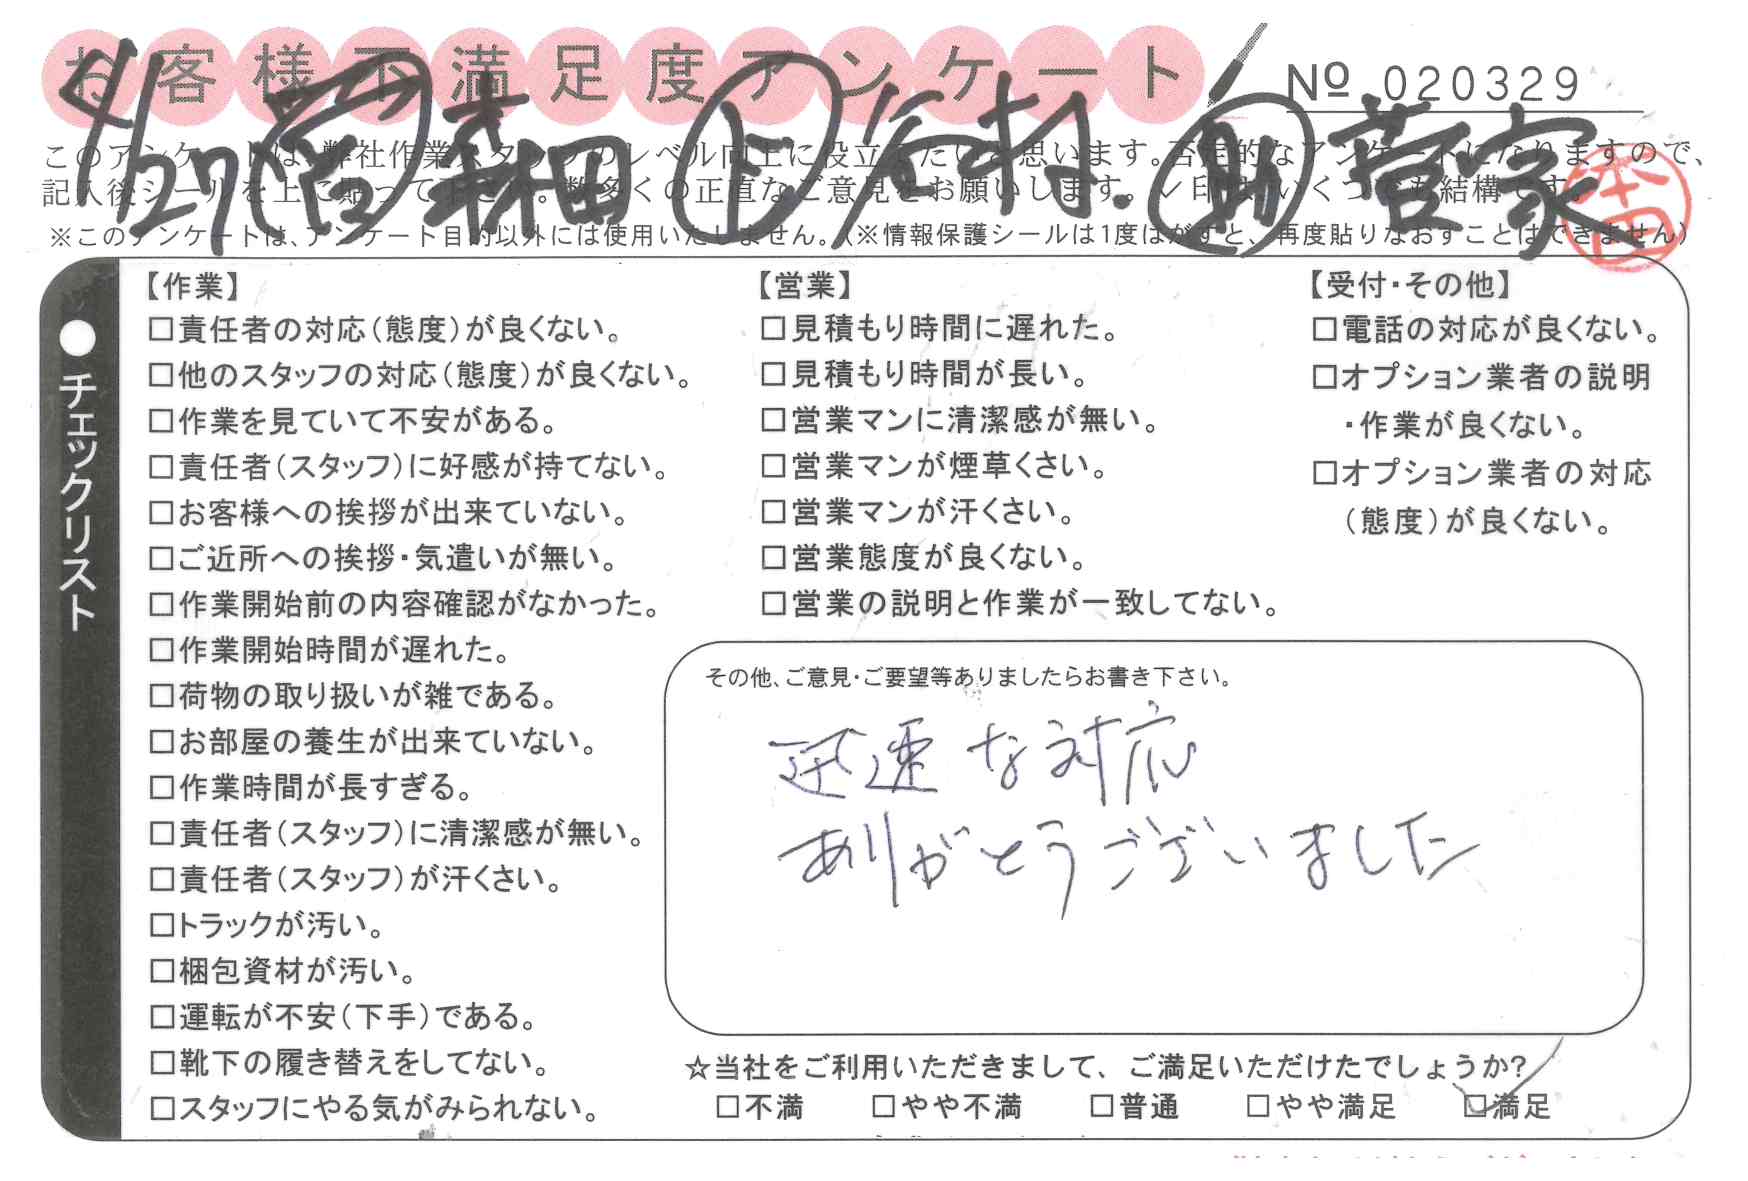 お客様不満足度アンケート
№ 020329
4/27 営 森田 上 谷村. 助 菅家
本田
このアンケートは、弊社作業スタッフのレベル向上に役立てたいと思います。否定的なアンケートになりますので、
記入後シールを上に貼って下さい。数多くの正直なご意見をお願いします。✓印はいくつでも結構です。
※このアンケートは、アンケート目的以外には使用いたしません。(※情報保護シールは1度はがすと、再度貼りなおすことはできません)
●チェックリスト
【作業】
□責任者の対応(態度)が良くない。
□他のスタッフの対応(態度)が良くない。
□作業を見ていて不安がある。
□責任者(スタッフ)に好感が持てない。
□お客様への挨拶が出来ていない。
□ご近所への挨拶・気遣いが無い。
□作業開始前の内容確認がなかった。
□作業開始時間が遅れた。
□荷物の取り扱いが雑である。
□お部屋の養生が出来ていない。
□作業時間が長すぎる。
□責任者(スタッフ)に清潔感が無い。
□責任者(スタッフ)が汗くさい。
□トラックが汚い。
□梱包資材が汚い。
□運転が不安(下手)である。
□靴下の履き替えをしてない。
□スタッフにやる気がみられない。
【営業】
□見積もり時間に遅れた。
□見積もり時間が長い。
□営業マンに清潔感が無い。
□営業マンが煙草くさい。
□営業マンが汗くさい。
□営業態度が良くない。
□営業の説明と作業が一致してない。
【受付・その他】
□電話の対応が良くない。
□オプション業者の説明
・作業が良くない。
□オプション業者の対応
(態度)が良くない。
その他、ご意見・ご要望等ありましたらお書き下さい。
迅速な対応
ありがとうございました
☆当社をご利用いただきまして、ご満足いただけたでしょうか?
□不満 □やや不満 □普通 □やや満足 ☑満足